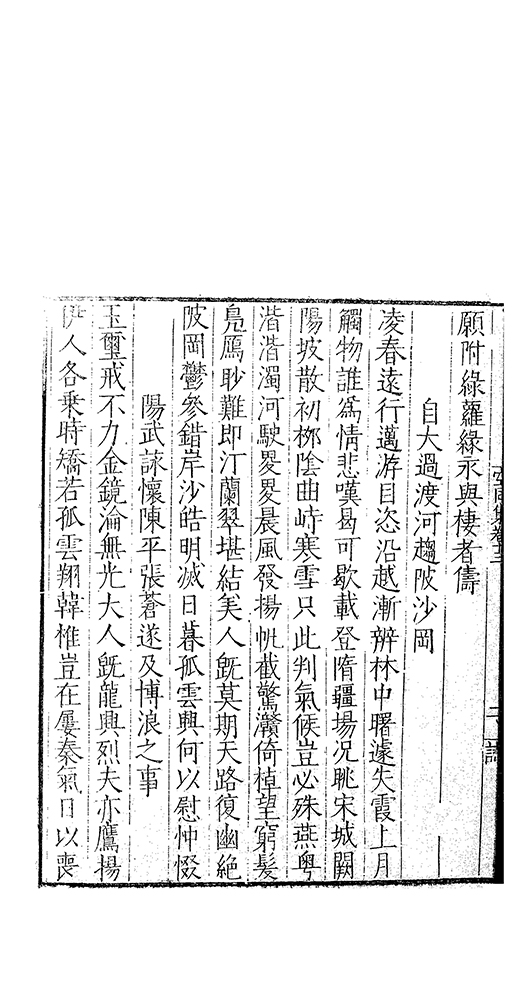 願附綠蘿緣永與棲者儔
自大過渡河趨陂沙岡
凌春遠行邁游目恣沿越漸辨林中曙遽失霞上月
觸物誰爲情悲嘆曷可歇載登隋疆場況眺宋城闕
陽坡散初桺陰曲峙寒雪只此判氣候豈必殊燕粤
湝湝濁河駛㫧㫧晨風發揚帆截驚灘倚棹望窮髮
鳧鴈眇難即汀蘭翠堪結美人旣莫期天路復幽絶
陂岡鬱參錯岸沙皓明滅日暮孤雲興何以慰忡惙
陽武詠懷陳平張蒼遂及博浪之事
玉璽戒不力金鏡淪無光大人旣龍興烈夫亦鷹揚
伊人各乗時矯若孤雲翔韓椎豈在屢秦氣日以喪